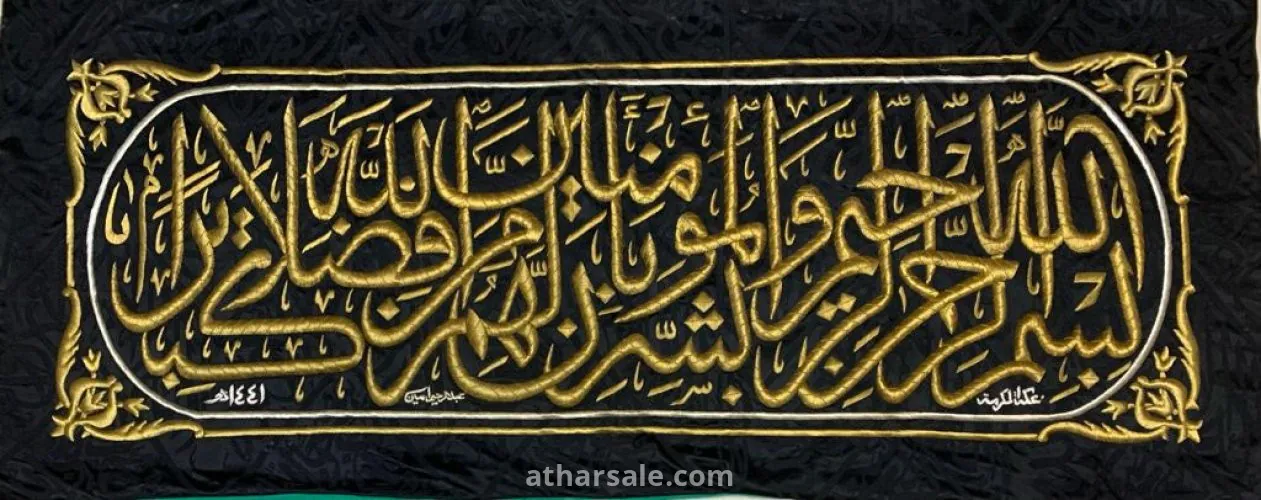 بسم الله الرحمن الرحيم وبشر المؤمنين بأن لهم من الله فضلا كبيرا
بمكة المكرمة
عبدالرحيم امين
١٤٤١هـ
atharsale.com